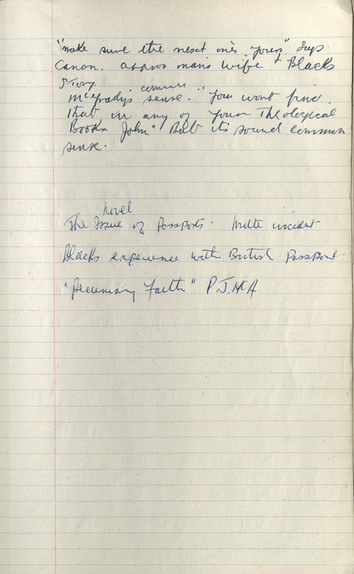 "make sure the next one's young" says
Canon. approp man's wife & Blacks
Story.
common
McGrady's sense. "You wont find
that in any of your Theological
Books John" But its sound common
sense.
novel
The Issue of Passports. incident
Blacks experience with British Passport.
"Pecuniary Faith" P.J.McA